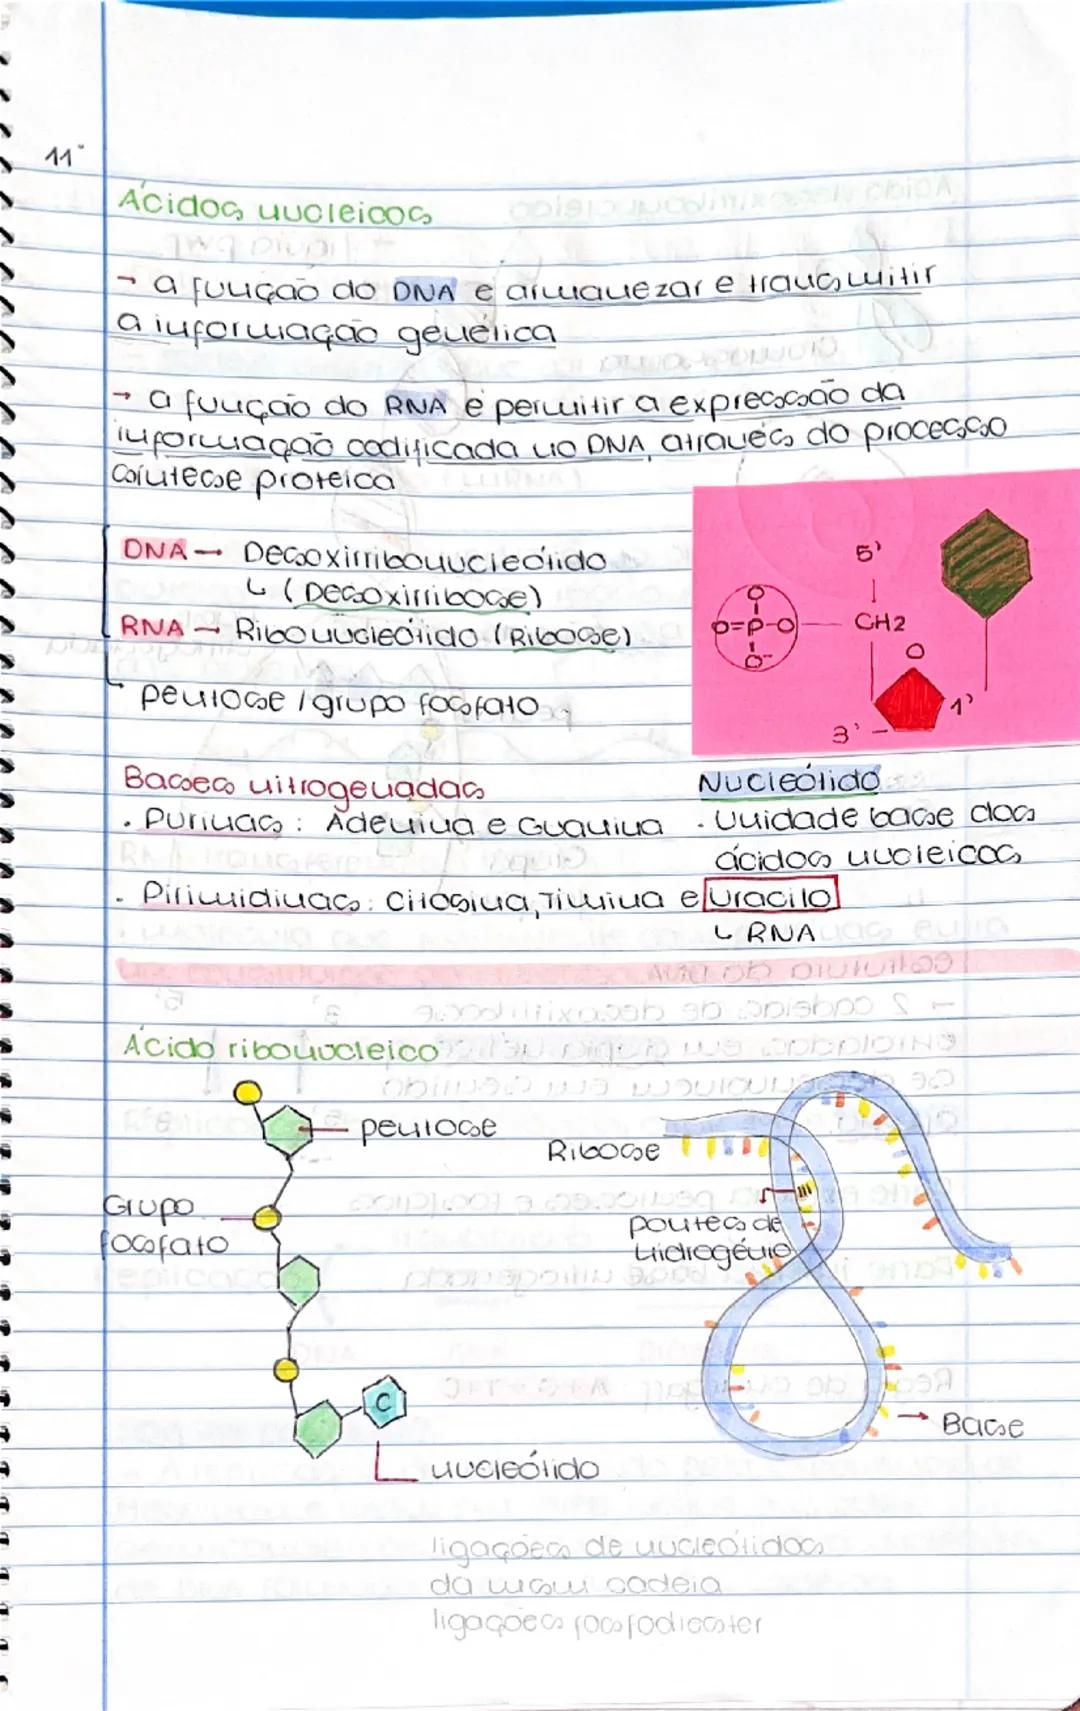 11º
Ácidos nucleicos
→ a função do DNA é armanezar e transmitir
a informação genética
→ a função do RNA é permitir a expressão da
informação codificada no DNA, através do processo
síntese proteica
DNA → Desoxirribonucleótido
↳ (Desoxirribose)
RNA → Ribonucleótido (Ribose)
pentose / grupo fosfato
5'
O
O=P-O
O-
CH2
O
1'
3'
Bases nitrogenadas
. Purinas : Adenina e Guanina
. Pirimidinas: Citosina, Timina e Uracilo
↳ RNA
Nucleótido
. Unidade base dos
ácidos nucleicos
Ácido ribonucleico
pentose
Grupo
fosfato
C
nucleótido
Ribose
pontes de
hidrogénio
→ Base
ligações de nucleótidos
da cadeia
ligações fosfodiester